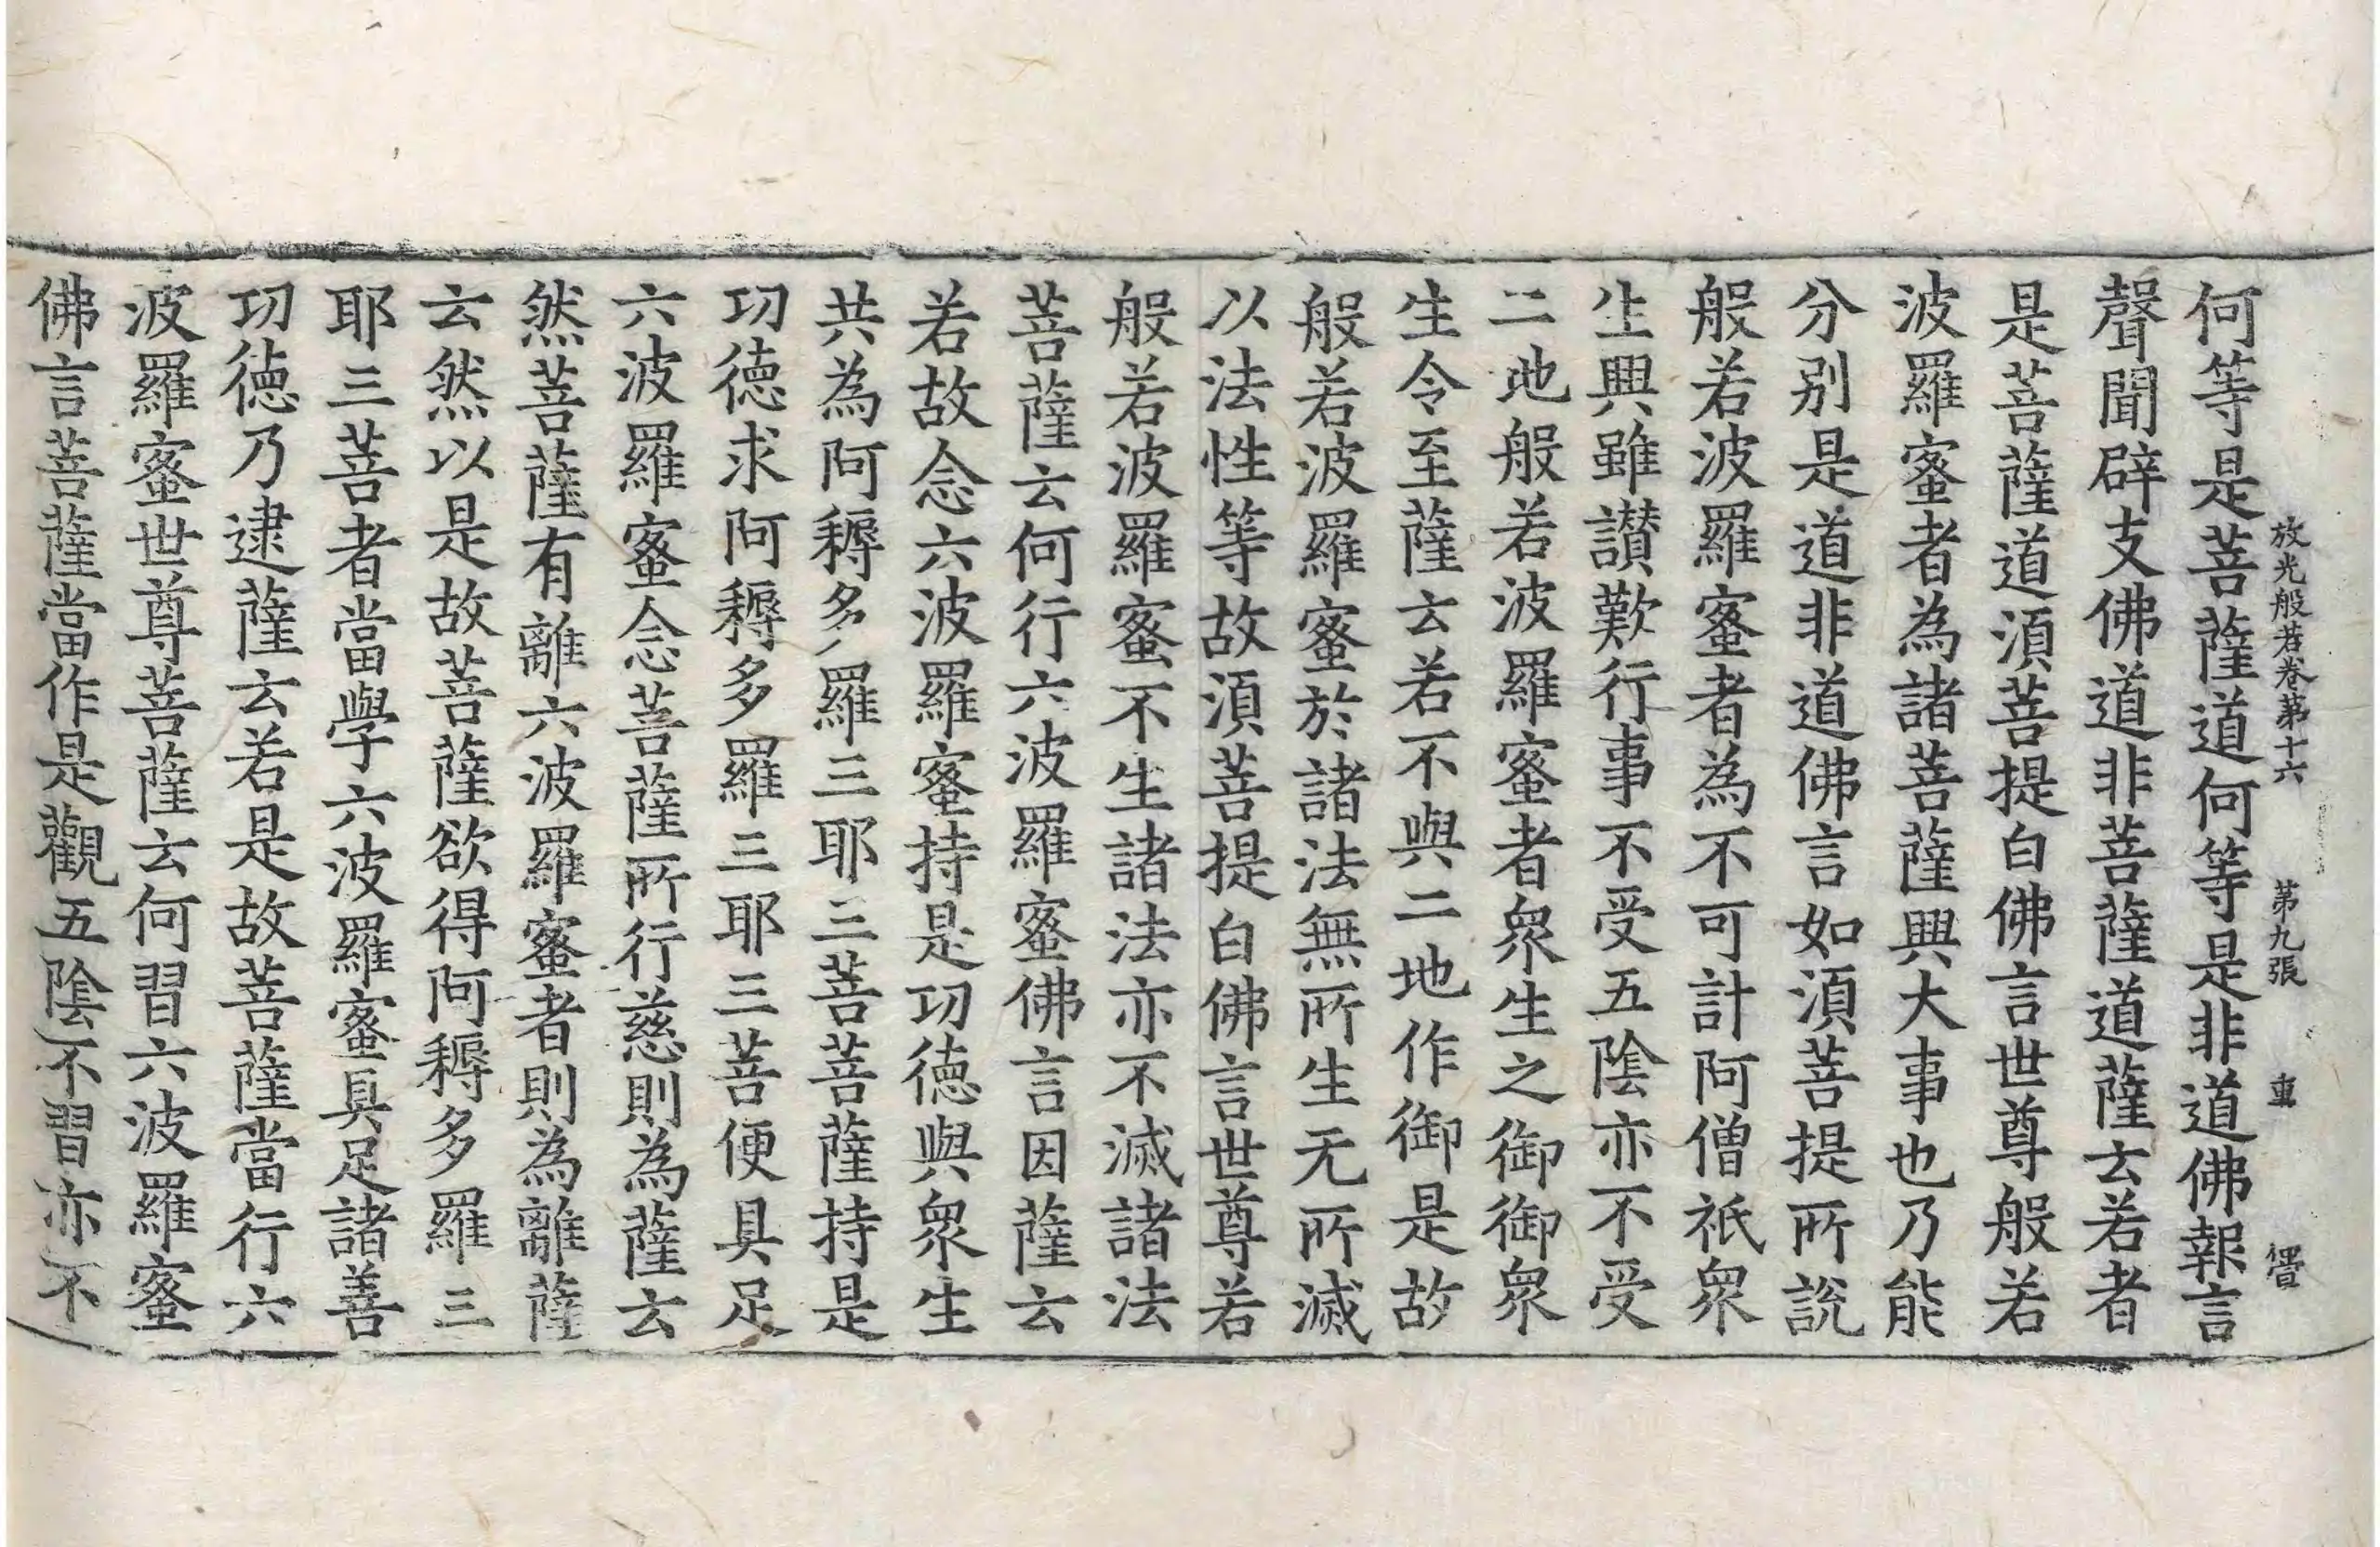 放光般若卷第十六 第九張 重
何等是菩薩道何等是非道佛報言
聲聞辟支佛道非菩薩道薩云若者
是菩薩道湏菩提白佛言世尊般若
波羅蜜者為諸菩薩興大事也乃能
分别是道非道佛言如湏菩提所說
般若波羅蜜者為不可計阿僧祇眾
生興雖讃歎行事不受五陰亦不受
二地般若波羅蜜者眾生之御御眾
生令至薩云若不與二地作御是故
般若波羅蜜於諸法無所生无所滅
以法性等故湏菩提白佛言世尊若
般若波羅蜜不生諸法亦不滅諸法
菩薩云何行六波羅蜜佛言因薩云
若故念六波羅蜜持是功德與眾生
共為阿耨多羅三耶三菩菩薩持是
功德求阿耨多羅三耶三菩便具足
六波羅蜜念菩薩所行慈則為薩云
然菩薩有離六波羅蜜者則為離薩
云然以是故菩薩欲得阿耨多羅三
耶三菩者當學六波羅蜜具足諸善
功德乃逮薩云若是故菩薩當行六
波羅蜜世尊菩薩云何習六波羅蜜
佛言菩薩當作是觀五陰不習亦不